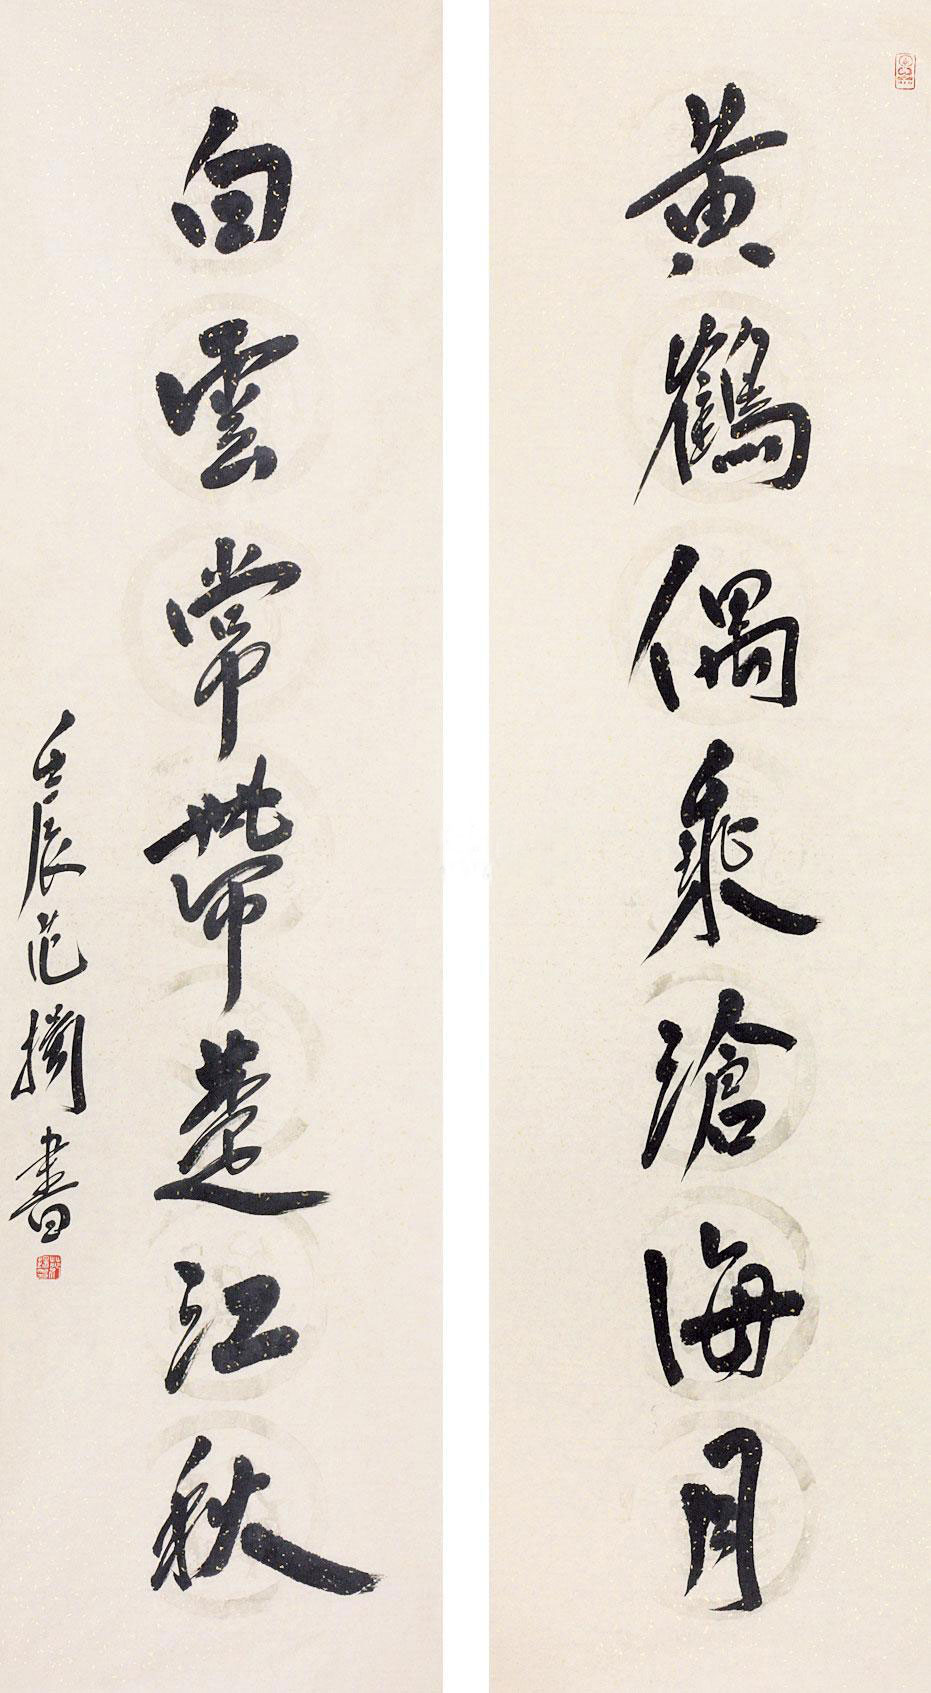 黃鶴偶乘滄海月
白雲常帶楚江秋
壬辰范擣書